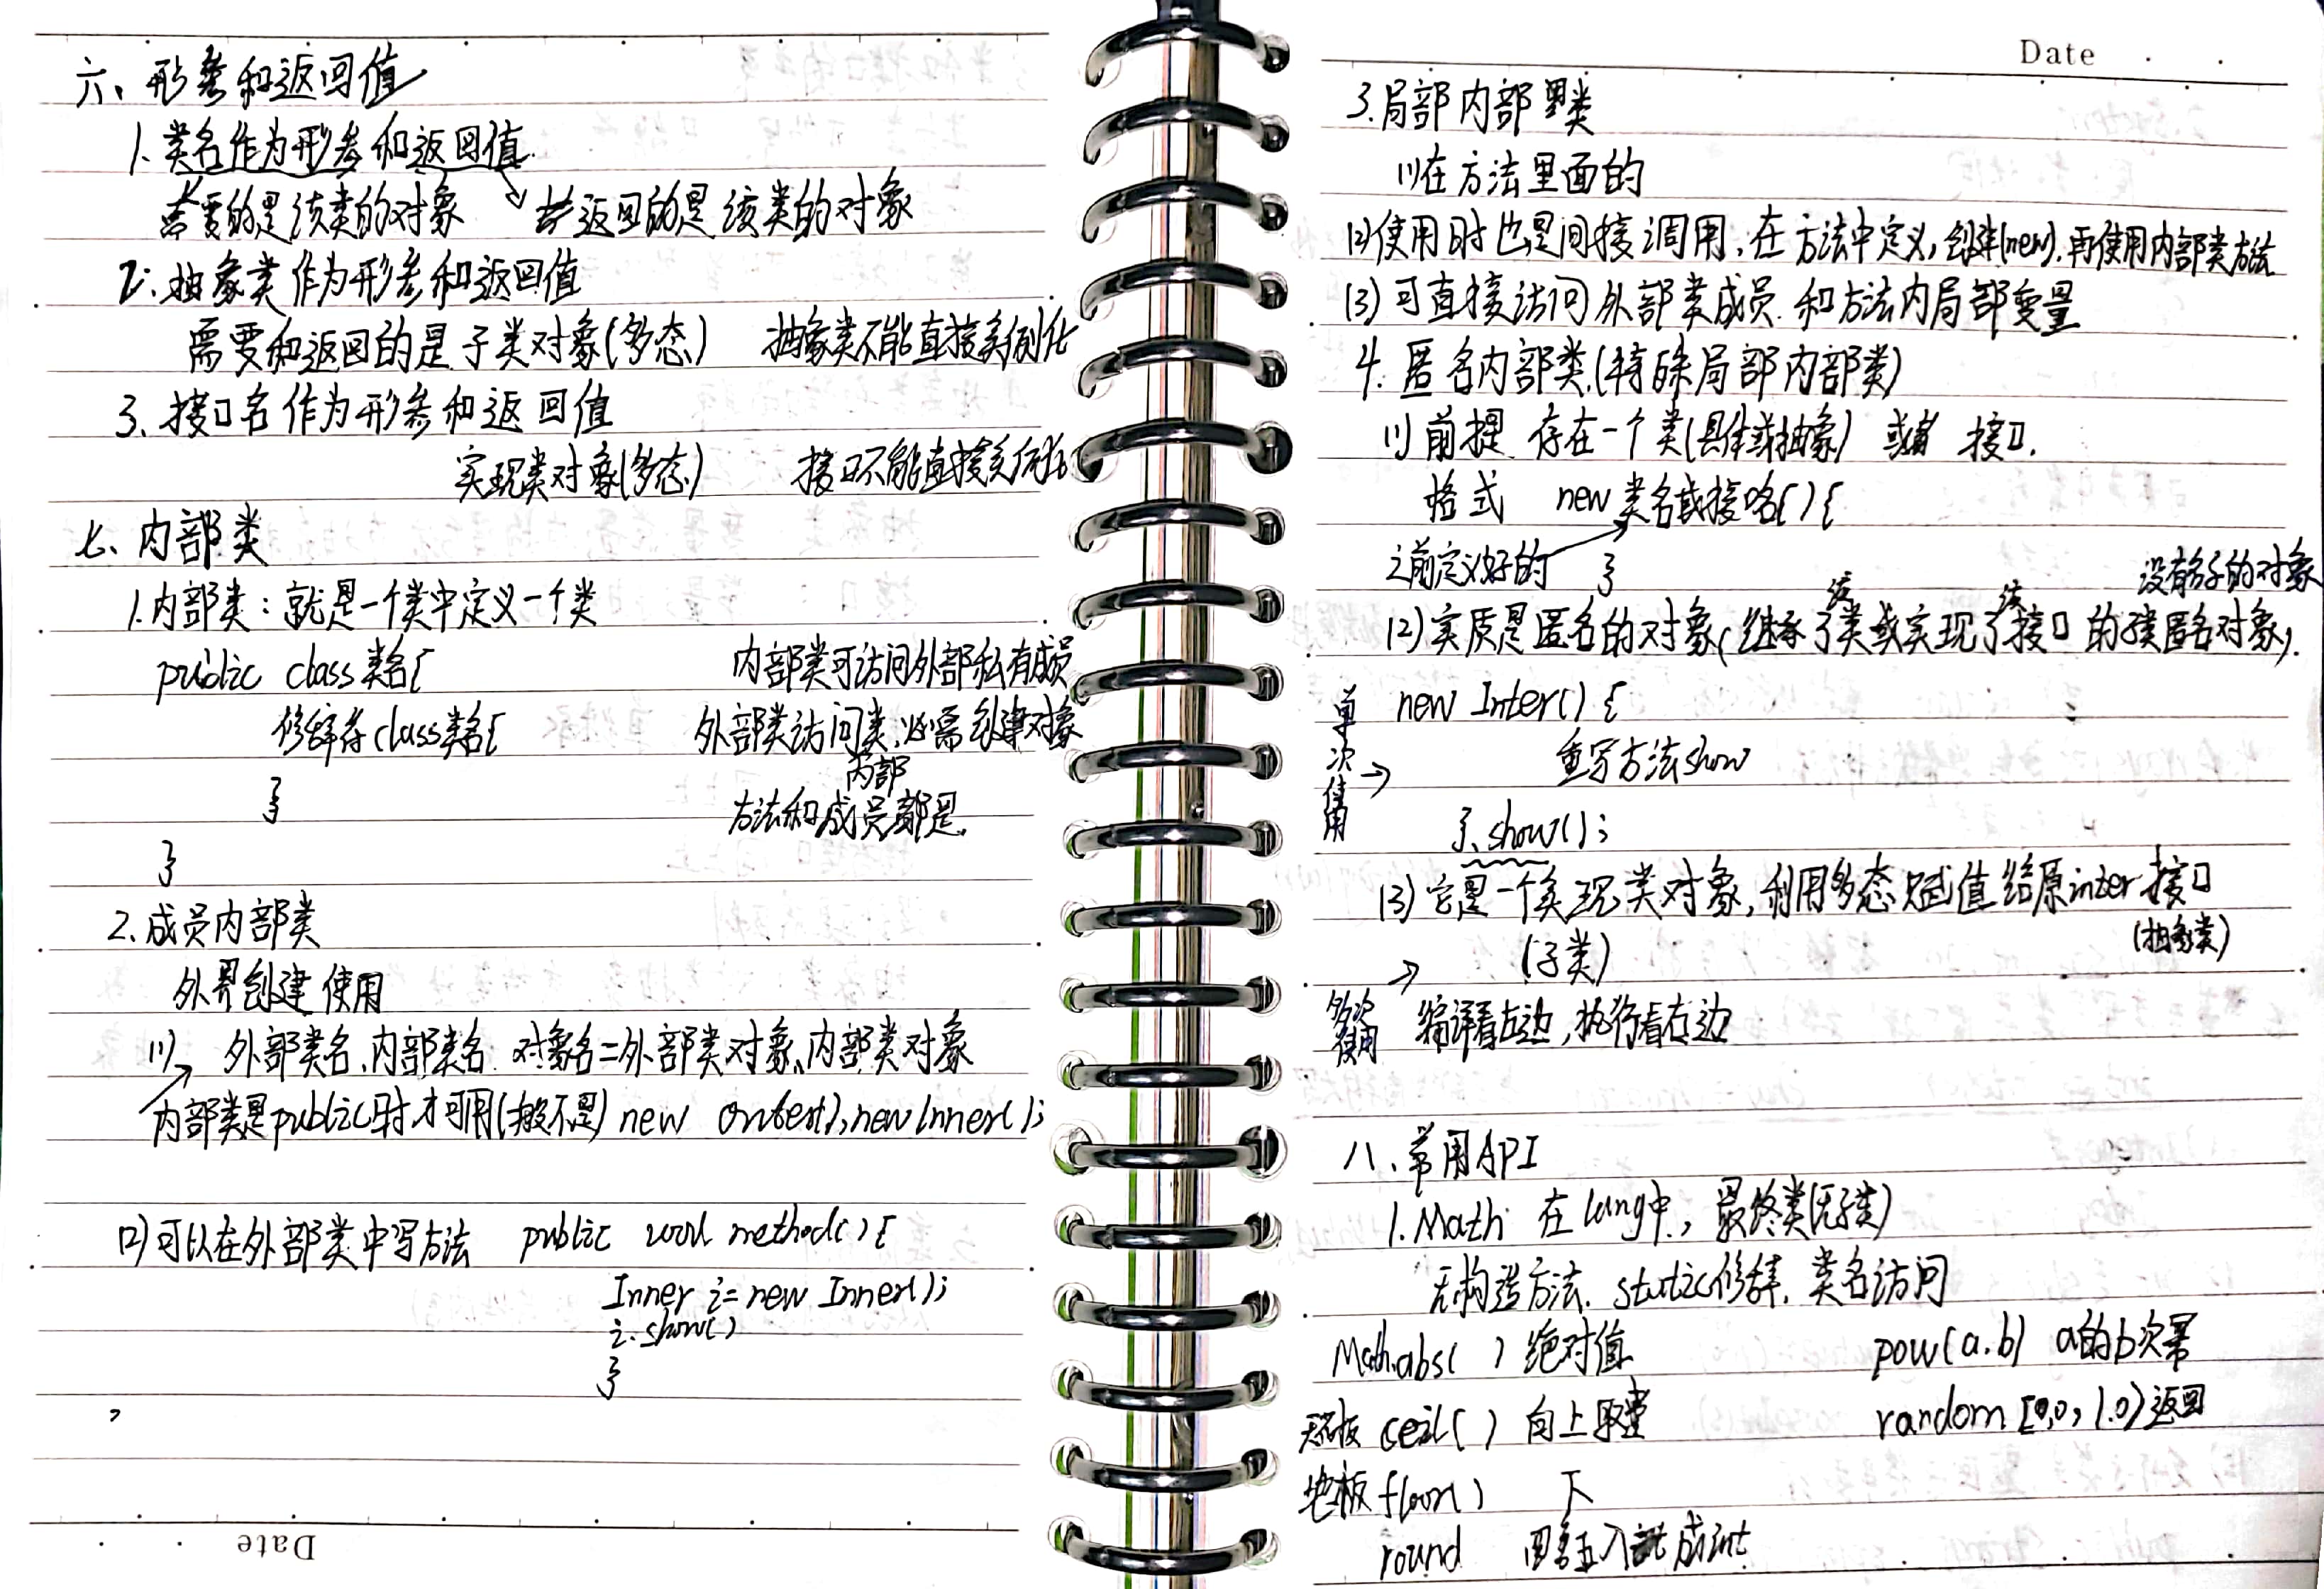 六、形参和返回值
1. 类名作为形参和返回值
需要的是该类的对象 返回的是该类的对象
2. 抽象类作为形参和返回值
需要和返回的是子类对象(多态) 抽象类不能直接实例化
3. 接口名作为形参和返回值
实现类对象(多态) 接口不能直接实例化
七、内部类
1. 内部类：就是一个类中定义一个类
public class 类名{ 内部类可访问外部私有成员
修饰符 class 类名{ 外部类访问内部类，必需创建对象
} 方法和成员都是.
}
2. 成员内部类
外界创建使用
(1) 外部类名.内部类名 对象名=外部类对象.内部类对象
内部类是public时才可用(一般不是) new Outer().new Inner();
(2) 可以在外部类中写方法 public void method(){
Inner i = new Inner();
i.show()
}
Date
Date
3. 局部内部类
(1) 在方法里面的
(2) 使用时也是间接调用，在方法中定义，创建(new)，再使用内部类方法
(3) 可直接访问外部类成员和方法内局部变量
4. 匿名内部类(特殊局部内部类)
(1) 前提 存在一个类(具体或抽象) 或者 接口.
格式 new 类名或接口名(){
之前定义好的 } 没有名字的对象
(2) 实质是匿名的对象(继承了该类或实现了该接口的匿名对象).
单次使用 → new Inter(){
重写方法show
}.show();
(3) 它是一个实现类对象，利用多态赋值给原inter接口
(子类) (抽象类)
多次使用 → 编译看左边，执行看右边
八、常用API
1. Math 在lang中，最终类(无子类)
无构造方法. static修饰. 类名访问
Math.abs( ) 绝对值 pow(a.b) a的b次幂
天花板 ceil( ) 向上取整 random [0.0, 1.0) 返回
地板 floor( ) 下
round 四舍五入 成int